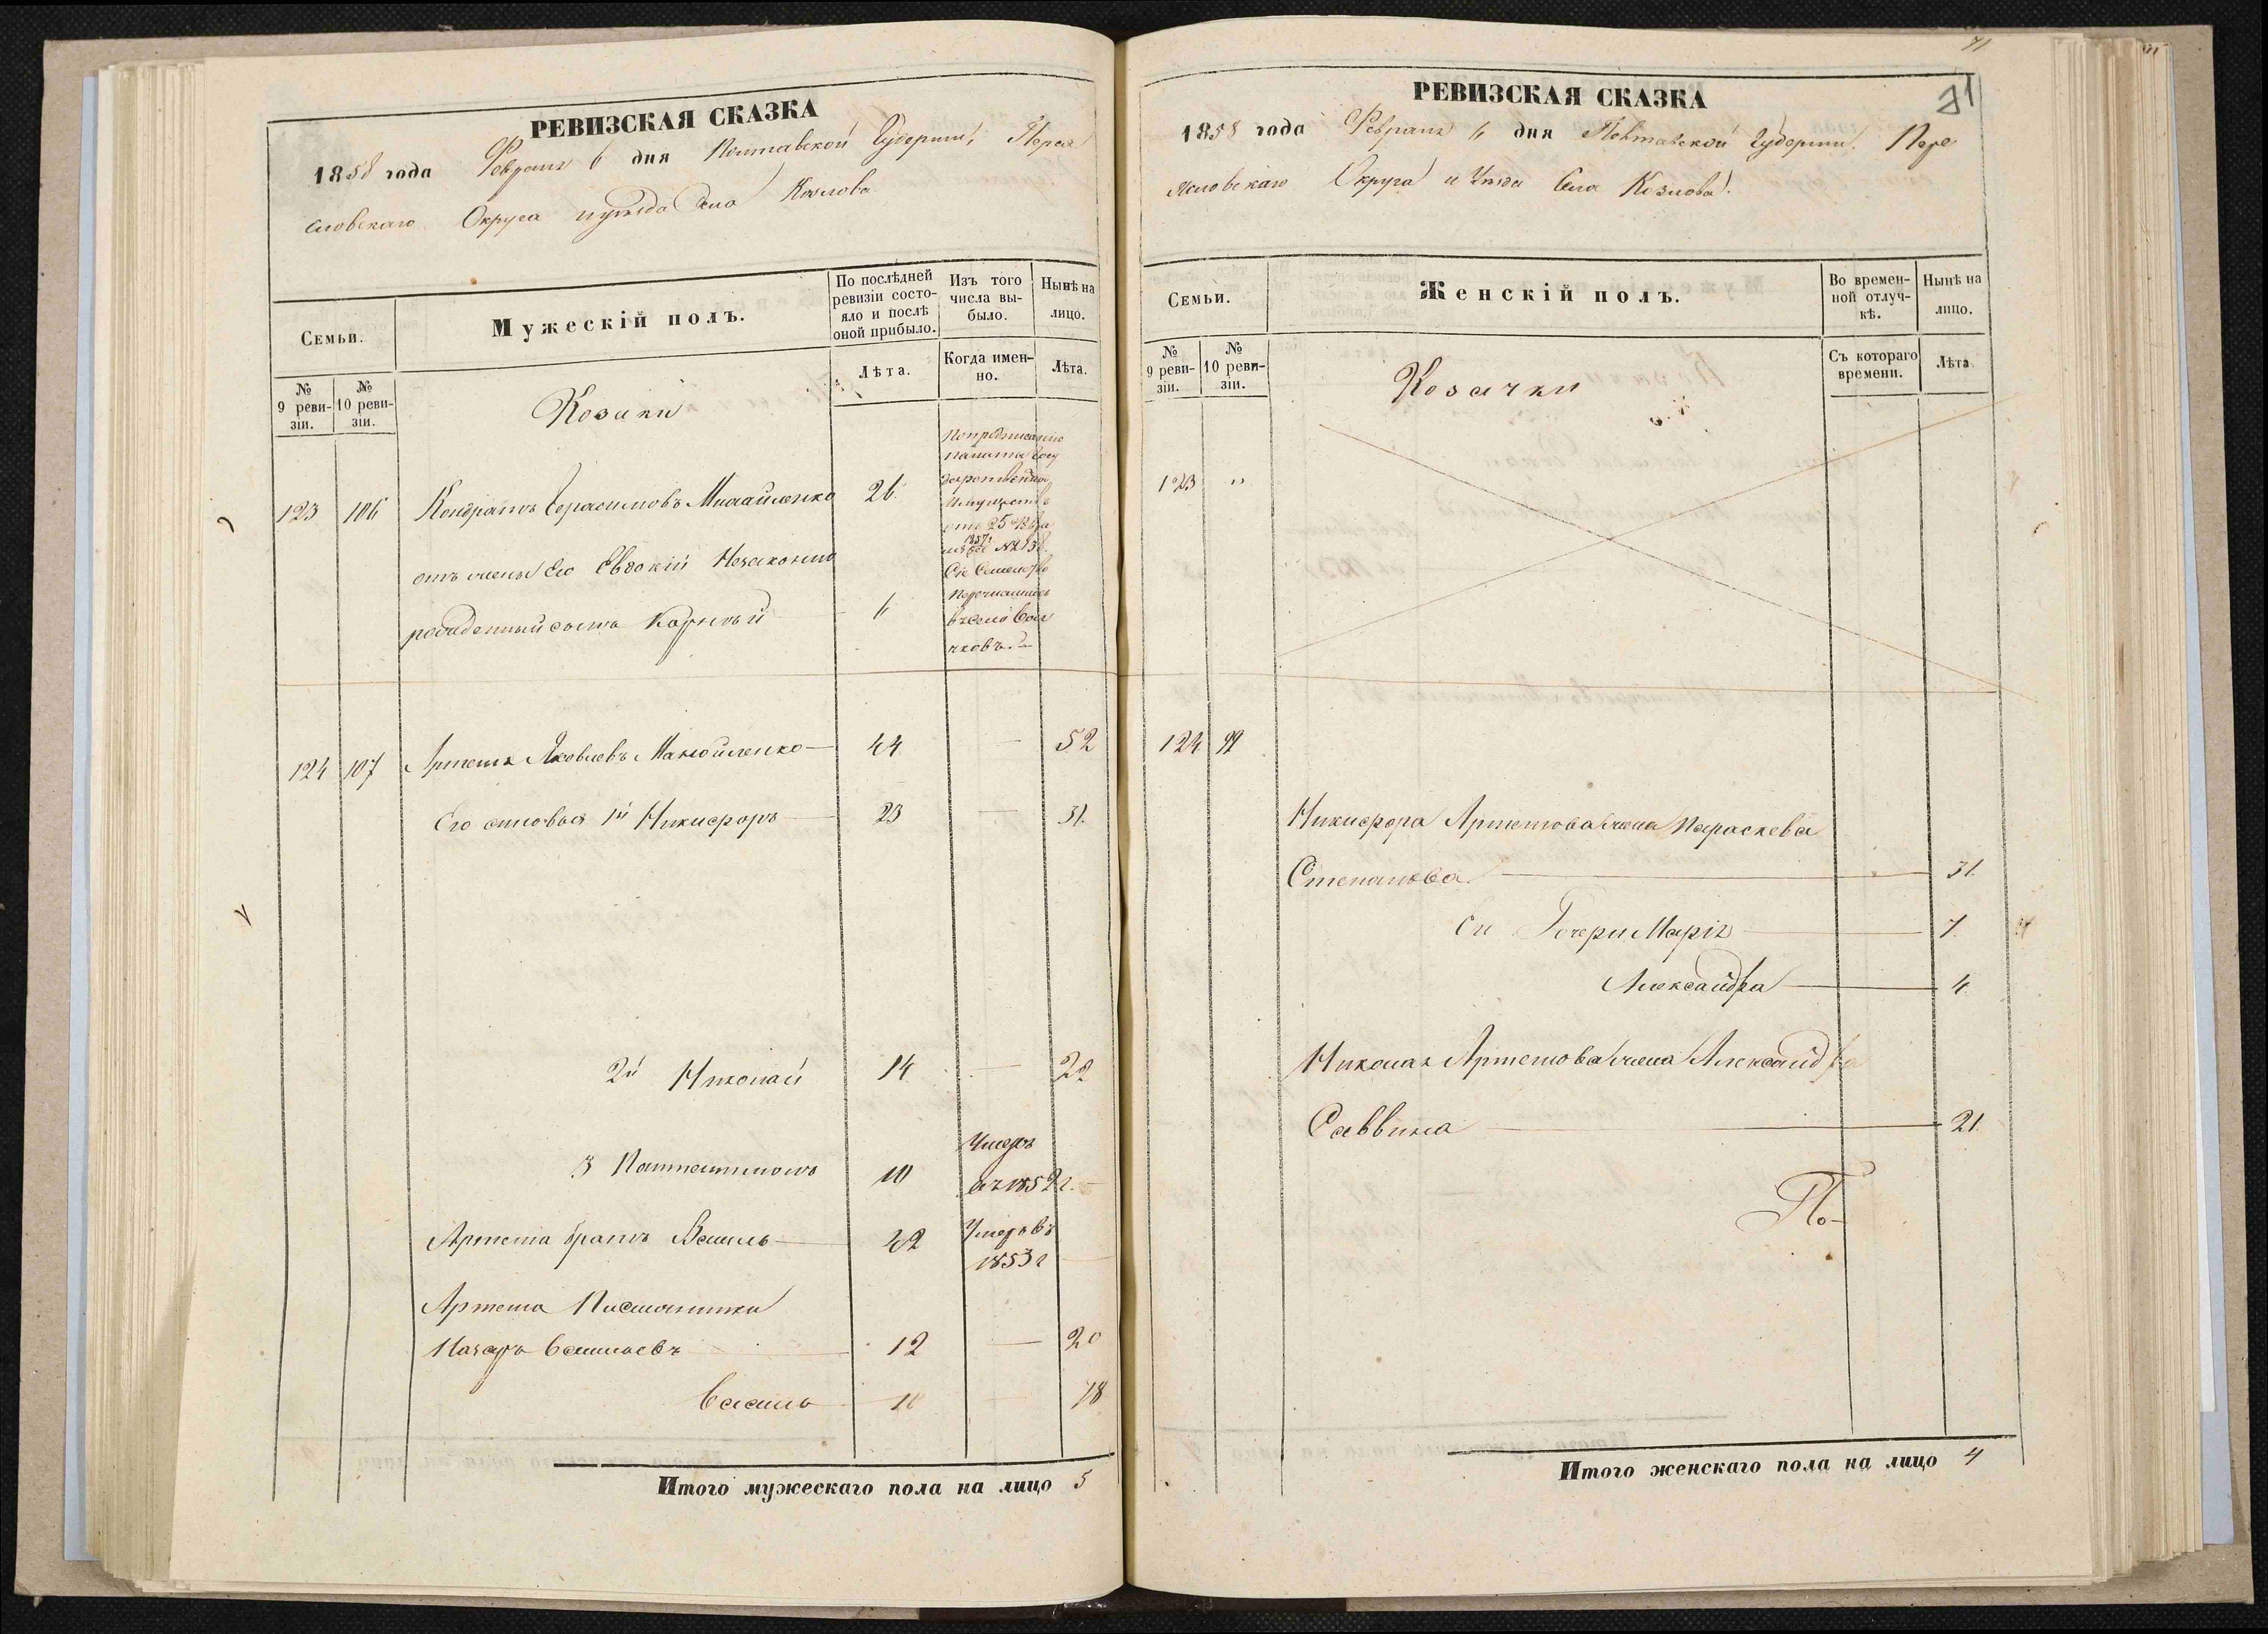 РЕВИЗСКАЯ СКАЗКА
1858 года Февраля 6 дня Полтавской Губернии, Перея
словскаго Округа и уезда Села Козлова
Семьи.
Мужескій полъ.
По послѣдней ревизіи состояло и послѣ оной прибыло.
Изъ того числа выбыло.
Нынѣ на лицо.
№ 9 ревизіи.
№ 10 ревизіи.
Лѣта.
Когда именно.
Лѣта.
Козаки
123 106 Кондратъ Герасимовъ 26
отъ жены Его Евдокіи Незаконно
рожденный сынъ Корнѣй 6
По предписанію
палаты Госу
дарственных
Имуществ
от 25
1857г
Сіе Семейство
Перечислились
въ село
124 107 Артемъ Яковлевъ Манойленко 44 — 52
Его сыновья 1й Никифоръ 23 — 31.
2й Николай 14 — 22
3 Пантелимонъ 10 Умеръ
въ 1852 г.
Артема братъ Василь 42 Умеръ въ
1853 г
Артема Племянники
Назаръ Васильевъ 12 — 20
Василь 10 — 18
Итого мужескаго пола на лицо 5
71
РЕВИЗСКАЯ СКАЗКА
71
1858 года Февраля 6 дня Полтавской Губернии. Пере
ясловскаго Округа и Уезда Села Козлова.
Семьи.
Женскій полъ.
Во временной отлучкѣ.
Нынѣ на лицо.
№ 9 ревизіи.
№ 10 ревизіи.
Съ котораго времени.
Лѣта
Козачки
123 "
124
Никифора Артемова жена Параскева
Степанова 31.
Ея Дочери Марія 7.
Александра 4
Николая Артемова жена Александра
Саввина 21.
По-
Итого женскаго пола на лицо 4